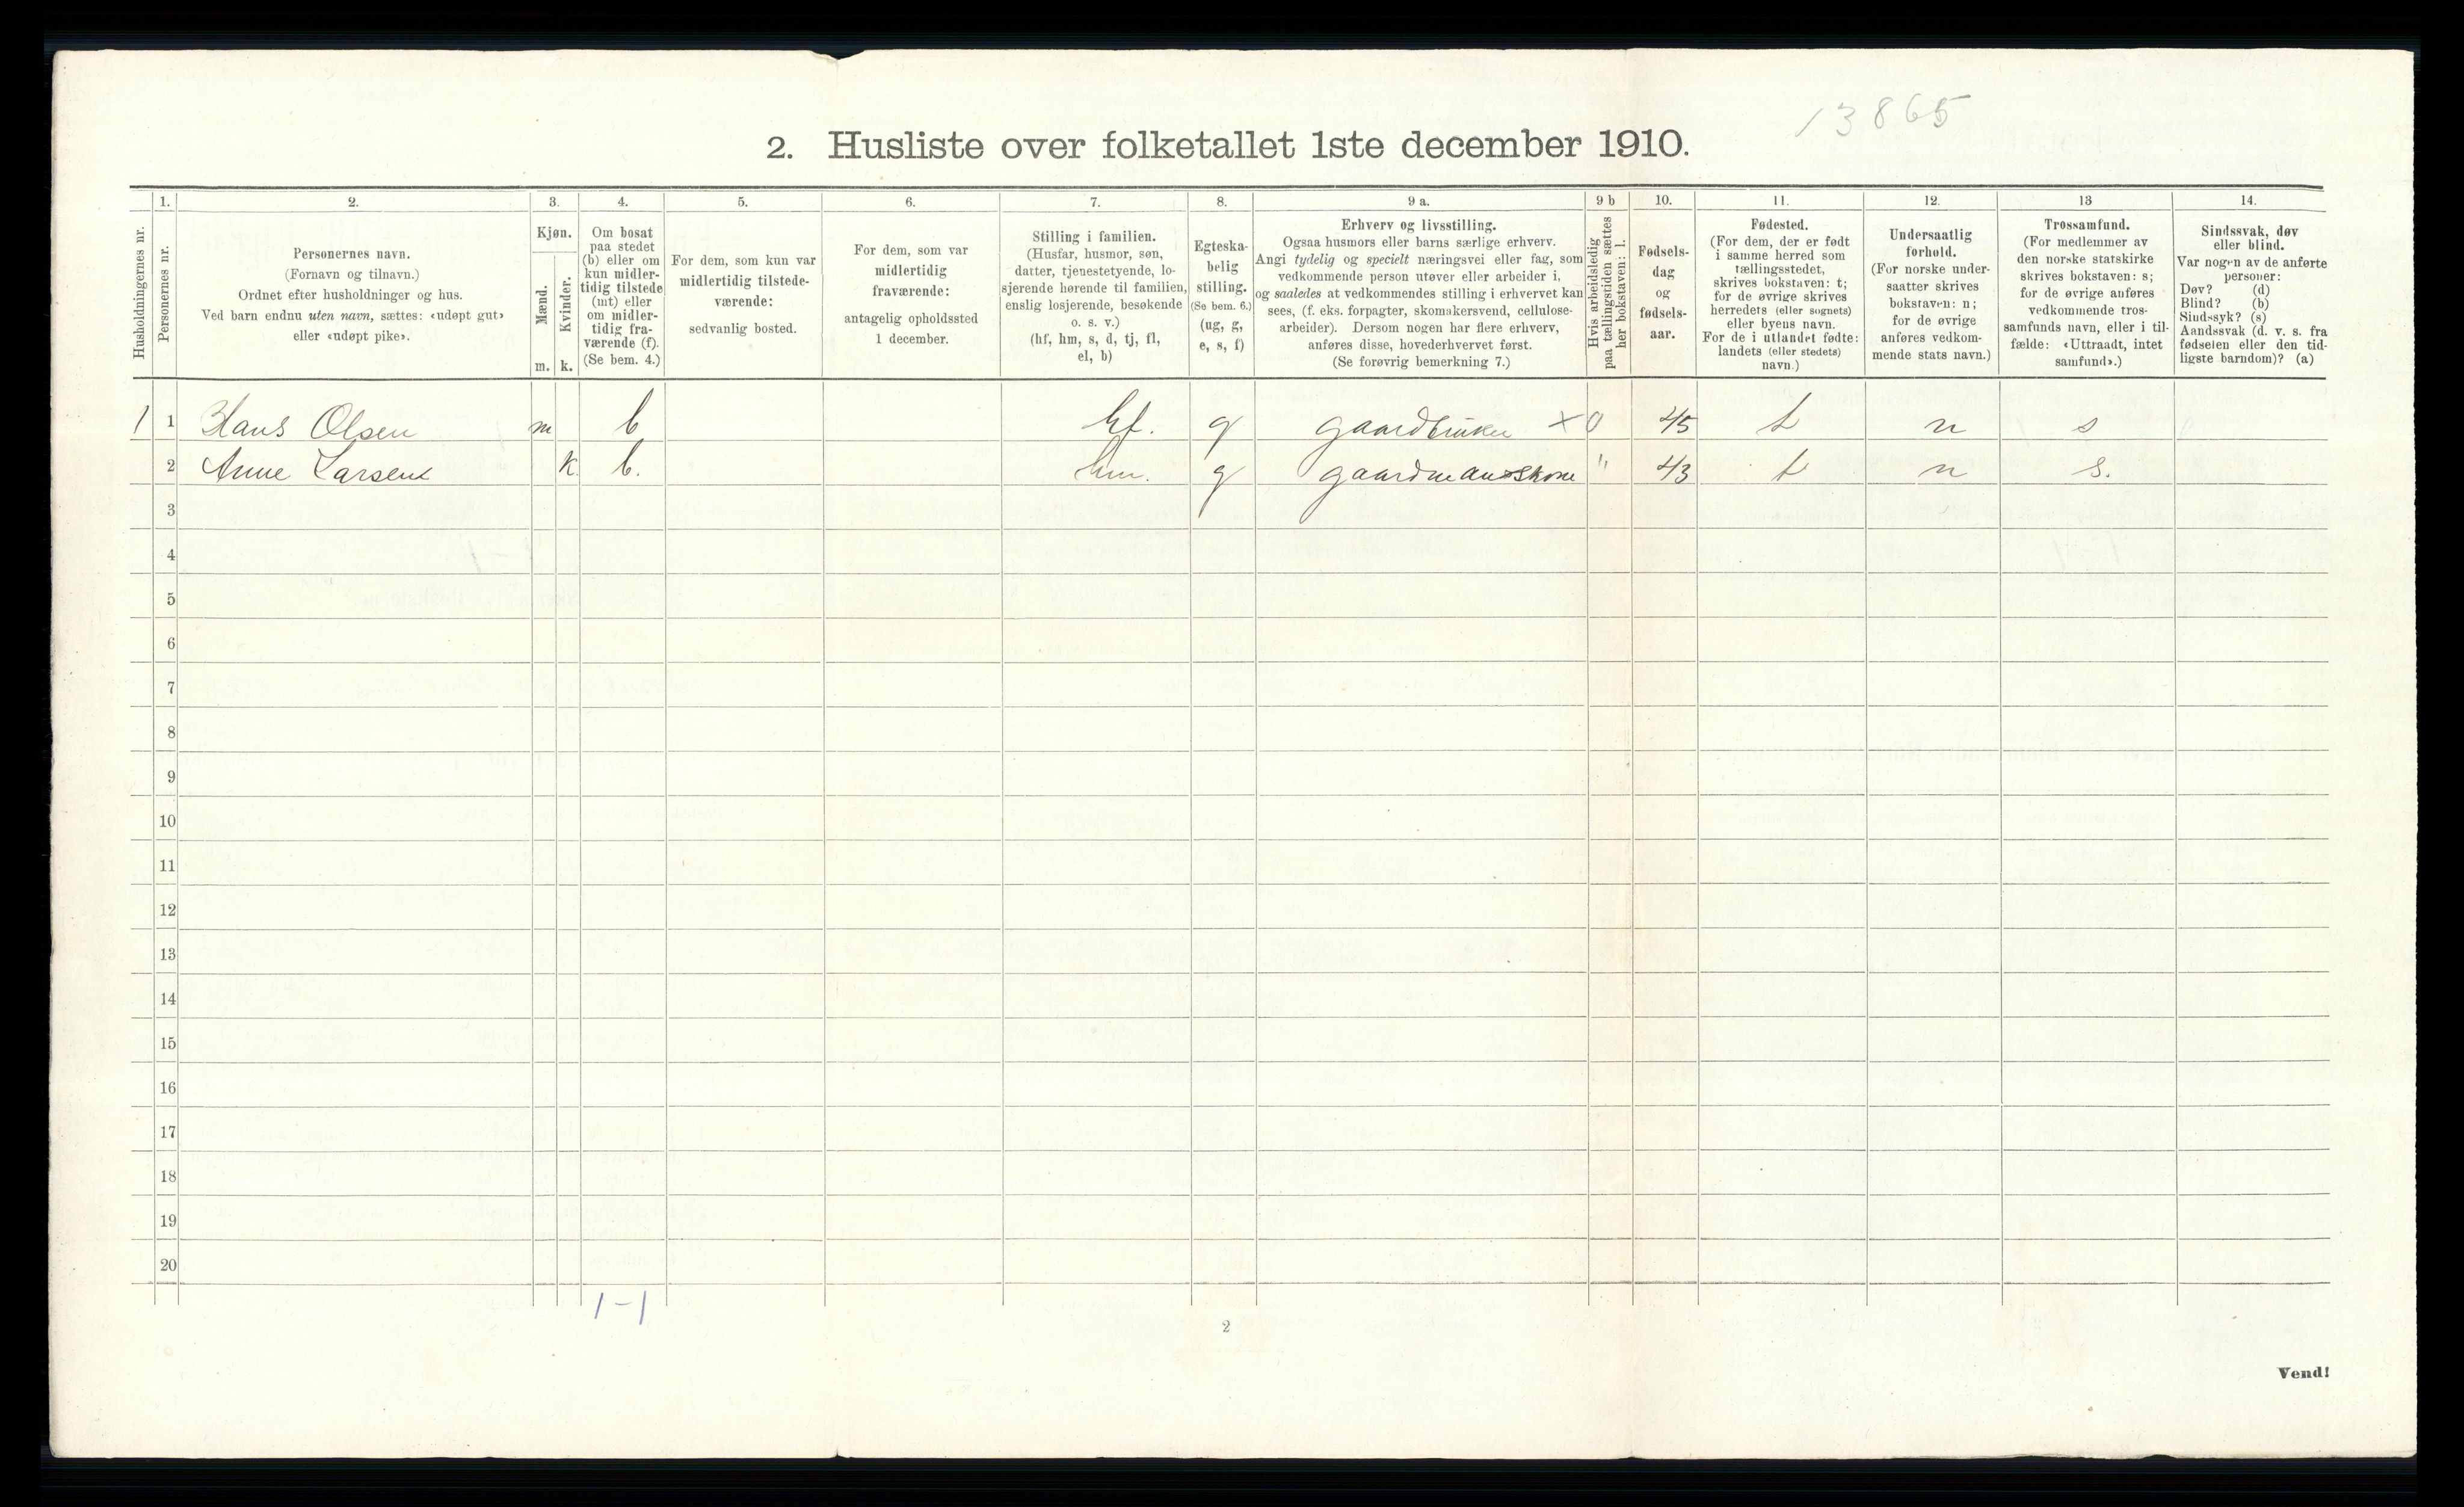 13865
2. Husliste over folketallet 1ste december 1910.
Husholdningernes nr.
1.
Personernes nr.
2.
Personernes navn.
(Fornavn og tilnavn.)
Ordnet efter husholdninger og hus.
Ved barn endnu uten navn, sættes: «udøpt gut»
eller «udøpt pike».
3.
Kjøn.
Mænd.
Kvinder.
m. k.
4.
Om bosat
paa stedet
(b) eller om
kun midler-
tidig tilstede
(mt) eller
om midler-
tidig fra-
værende (f).
(Se bem. 4.)
5.
For dem, som kun var
midlertidig tilstede-
værende:
sedvanlig bosted.
6.
For dem, som var
midlertidig
fraværende:
antagelig opholdssted
1 december.
7.
Stilling i familien.
(Husfar, husmor, søn,
datter, tjenestetyende, lo-
sjerende hørende til familien,
enslig losjerende, besøkende
o. s. v.)
(hf, hm, s, d, tj, fl,
el, b)
8.
Egteska-
belig
stilling.
(Se bem. 6.)
(ug, g,
e, s, f)
9 a.
Erhverv og livsstilling.
Ogsaa husmors eller barns særlige erhverv.
Angi tydelig og specielt næringsvei eller fag, som
vedkommende person utøver eller arbeider i,
og saaledes at vedkommendes stilling i erhvervet kan
sees, (f. eks. forpagter, skomakersvend, cellulose-
arbeider). Dersom nogen har flere erhverv,
anføres disse, hovederhvervet først.
(Se forøvrig bemerkning 7.)
9 b
Hvis arbeidsledig
paa tællingstiden sættes
her bokstaven: l.
10.
Fødsels-
dag
og
fødsels-
aar.
11.
Fødested.
(For dem, der er født
i samme herred som
tællingsstedet,
skrives bokstaven: t;
for de øvrige skrives
herredets (eller sognets)
eller byens navn.
For de i utlandet fødte:
landets (eller stedets)
navn.)
12.
Undersaatlig
forhold.
(For norske under-
saatter skrives
bokstaven: n;
for de øvrige
anføres vedkom-
mende stats navn.)
13
Trossamfund.
(For medlemmer av
den norske statskirke
skrives bokstaven: s;
for de øvrige anføres
vedkommende tros-
samfunds navn, eller i til-
fælde: «Uttraadt, intet
samfund».)
14.
Sindssvak, døv
eller blind.
Var nogen av de anførte
personer:
Døv? (d)
Blind? (b)
Sindssyk? (s)
Aandssvak (d. v. s. fra
fødselen eller den tid-
ligste barndom)? (a)
1 1 Hans Olsen m b hf. g gaardbruker × 0 45 t n s
2 Anne Larsen k. b. hm. g gaardmandskone " 43 t n s.
3
4
5
6
7
8
9
10
11
12
13
14
15
16
17
18
19
20
1-1
2
Vend!